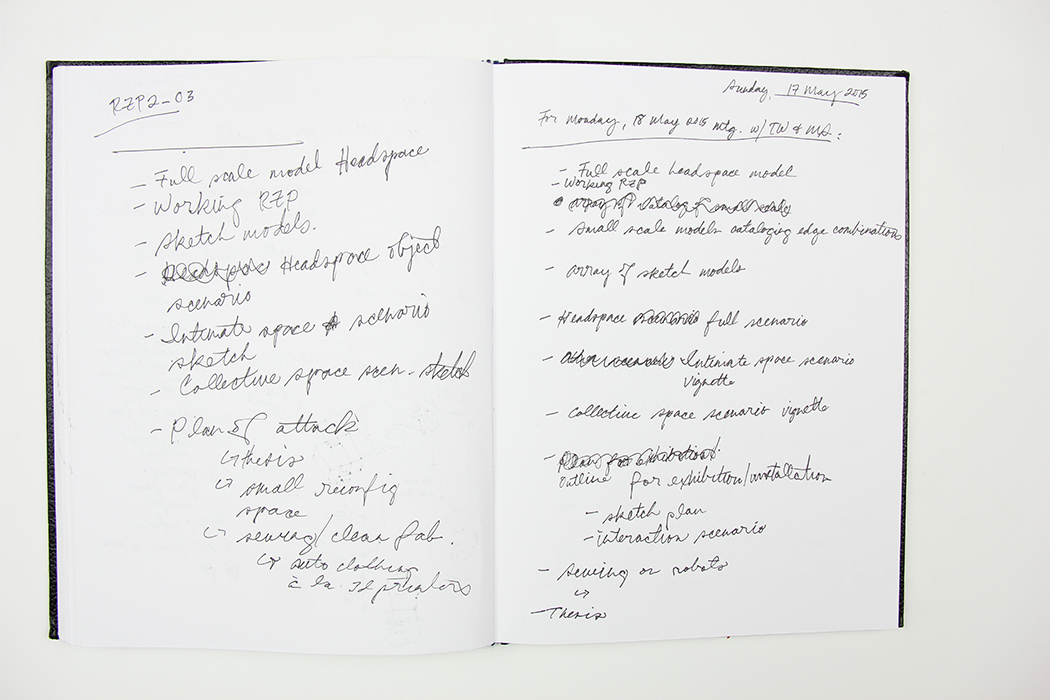 RZP2-03
- Full scale model Headspace
- Working RZP
- sketch models.
- Headspace object
scenario
- Intimate space scenario
sketch
- Collective space scen. sketch
- Plan of attack
↳ thesis
↳ small reconfig
space
↳ sewing/clean fab.
↳ auto clothing
à la
Sunday, 17 May 2015
For Monday, 18 May 2015 mtg. w/ TW &
- Full scale headspace model
- Working RZP
- small scale models cataloging edge combinations
- array of sketch models
- Headspace full scenario
- Intimate space scenario
vignette
- collective space scenario vignette
- Outline for exhibition/installation
- sketch plan
- interaction scenario
- sewing or robots
↳
- Thesis